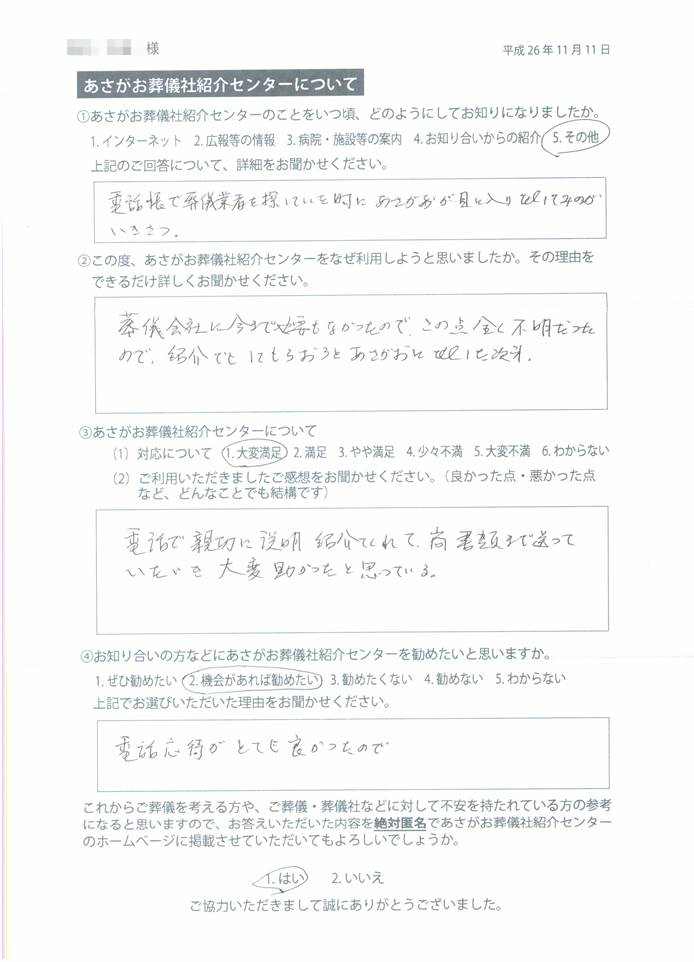 様
平成26年11月11日
あさがお葬儀社紹介センターについて
①あさがお葬儀社紹介センターのことをいつ頃、どのようにしてお知りになりましたか。
1.インターネット 2.広報等の情報 3.病院・施設等の案内 4.お知り合いからの紹介 5.その他
上記のご回答について、詳細をお聞かせください。
電話帳で葬儀業者を探していた時にあさがおが目に入りTELしてみたのが
いきさつ。
②この度、あさがお葬儀社紹介センターをなぜ利用しようと思いましたか。その理由を
できるだけ詳しくお聞かせください。
葬儀会社に今まで必要もなかったので、この点全く不明だった
ので、紹介でもしてもらおうとあさがおにTELした次第.
③あさがお葬儀社紹介センターについて
(1) 対応について 1.大変満足 2.満足 3.やや満足 4.少々不満 5.大変不満 6.わからない
(2) ご利用いただきましたご感想をお聞かせください。(良かった点・悪かった点
など、どんなことでも結構です)
電話で親切に説明 紹介してくれて、尚 書類まで送って
いただき 大変助かったと思っている。
④お知り合いの方などにあさがお葬儀社紹介センターを勧めたいと思いますか。
1.ぜひ勧めたい 2.機会があれば勧めたい 3.勧めたくない 4.勧めない 5.わからない
上記でお選びいただいた理由をお聞かせください。
電話応待がとても良かったので
これからご葬儀を考える方や、ご葬儀・葬儀社などに対して不安を持たれている方の参考
になると思いますので、お答えいただいた内容を絶対匿名であさがお葬儀社紹介センター
のホームページに掲載させていただいてもよろしいでしょうか。
1.はい 2.いいえ
ご協力いただきまして誠にありがとうございました。